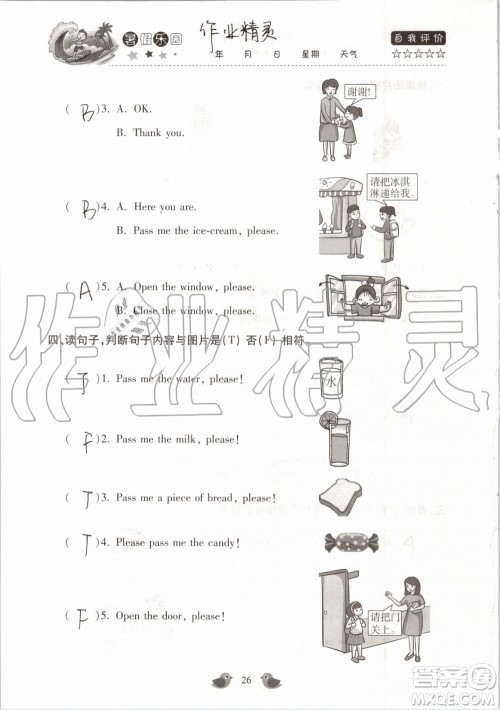 暑假乐园 作业精灵 自我评价
年 月 日 星期 天气 ☆☆☆☆☆
( B )3. A. OK.
B. Thank you.
谢谢!
( B )4. A. Here you are.
B. Pass me the ice-cream, please.
请把冰淇
淋递给我。
( A )5. A. Open the window, please.
B. Close the window, please.
四、读句子,判断句子内容与图片是(T)否(F)相符。
( T )1. Pass me the water, please!
水
( F )2. Pass me the milk, please!
( T )3. Pass me a piece of bread, please!
( T )4. Please pass me the candy!
( F )5. Open the door, please!
请把门
关上。
26
作业精灵
答案圈
MXQE.COM